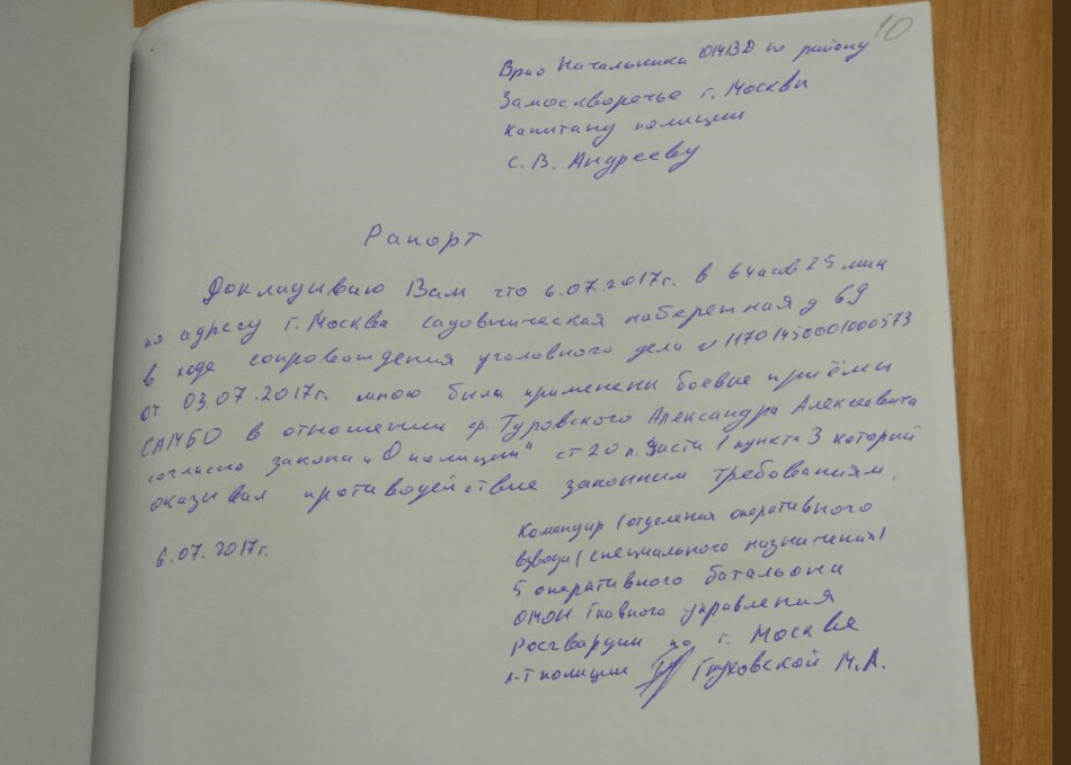 10
Врио Начальника ОМВД по району
Замоскворечье г. Москвы
капитану полиции
С. В. Андрееву
Рапорт
Докладываю Вам что 6.07.2017г. в 6 часов 25 мин
по адресу г. Москва Садовническая набережная д 69
в ходе сопровождения уголовного дела № 11701450001000573
от 03.07.2017г. мною были применены боевые приёмы
САМБО в отношении гр. Туровского Александра Алексеевича
согласно закона „О полиции" ст 20 п. Части 1 пункта 3 который
оказывал противодействие законным требованиям.
6.07.2017г.
Командир 1 отделения оперативного
взвода (специального назначения)
5 оперативного батальона
ОМОН Главного управления
Росгвардии по г. Москве
л-т полиции Глуховской М.А.